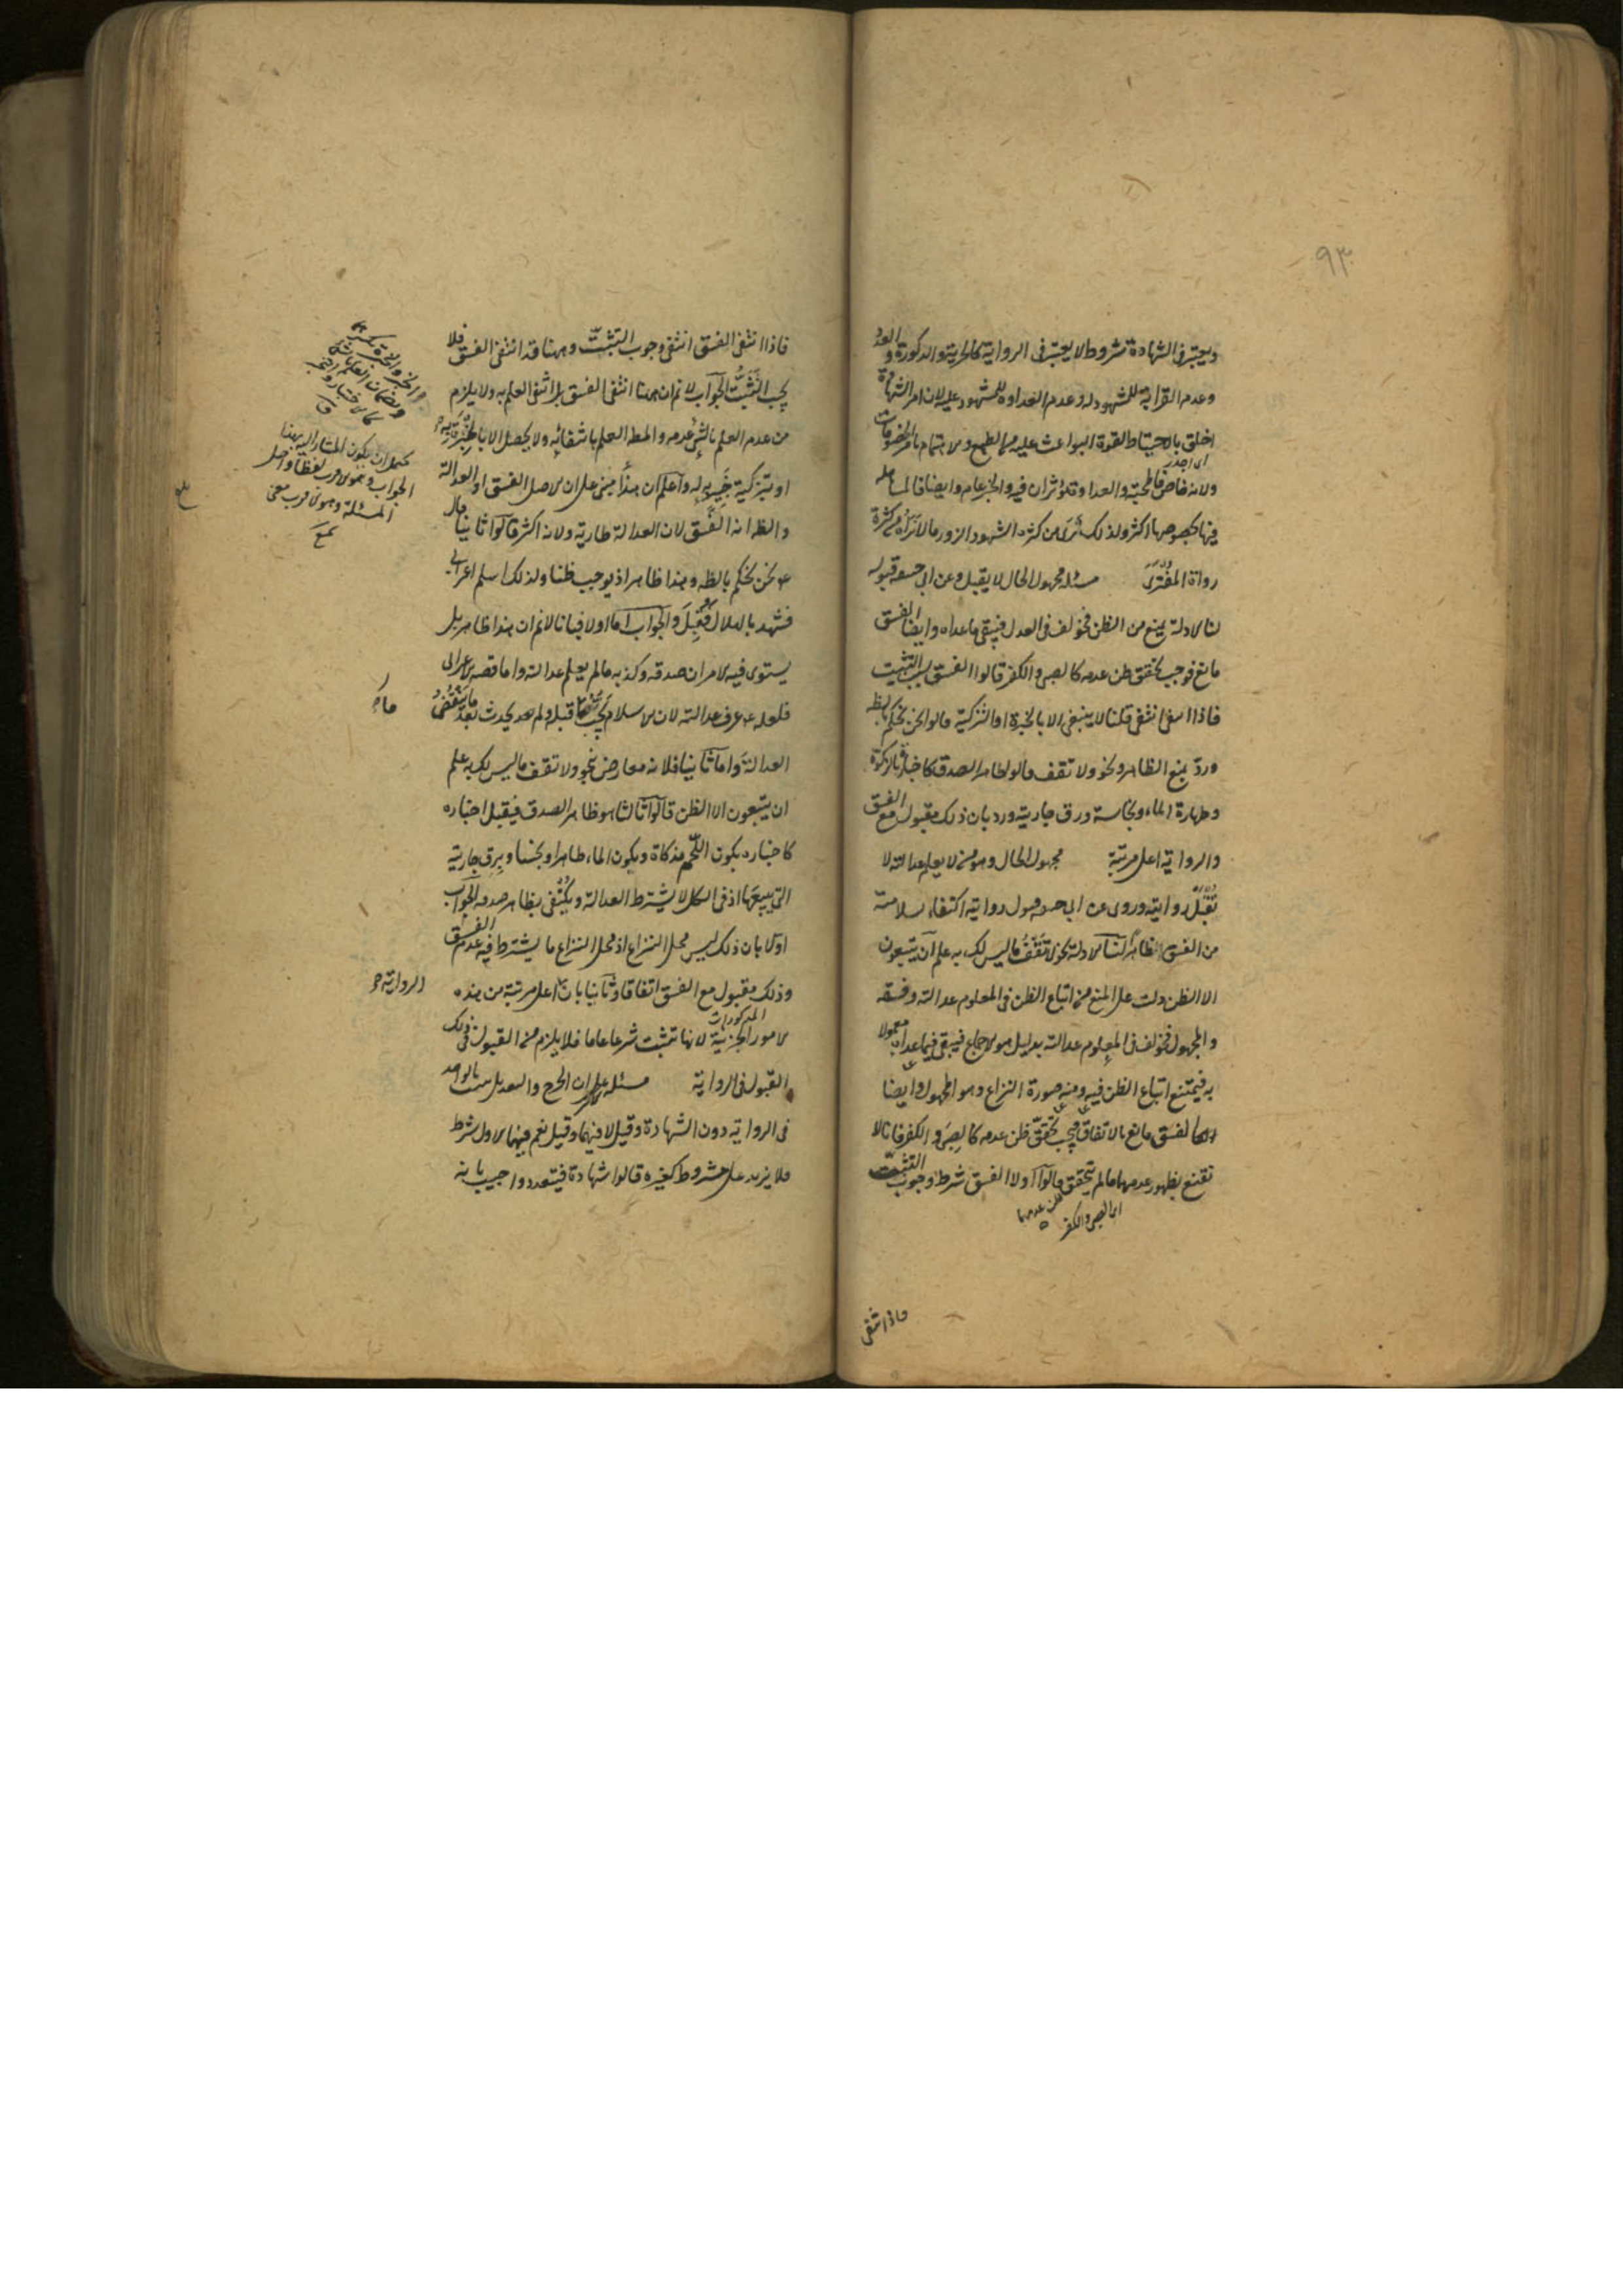 ٩٣
ويعتبر فى الشهادة شروط لا يعتبر فى الرواية كالحرية والذكورة والعدد
وعدم القرابة للمشهود له وعدم العداوة للمشهود عليه لان امر الشهادة
اخلق بالاحتياط لقوة البواعث عليه من الطمع والاهتمام بامر الخصومات
اى اجدر
ولانه خاص فالمحبة والعداوة تؤثران فيه والخبر عام وايضا فالمساهلة
فيها بخصوصها اكثر ولذلك ترى من كثرة الشهود الزور ما لا تراه من كثرة
رواة المفترى مسئله مجهول الحال لا يقبل وعن ابى حنيفه قبوله
لنا الادلة يمنع من الظن فخولف فى العدل فيبقى ما عداه وايضا الفسق
مانع فوجب تحقق ظن عدمه كالصبى والكفر قالوا الفسق سبب التثبت
فاذا انتفى انتفى قلنا لا ينتفى الا بالخبرة او التزكية قالوا نحن نحكم بالظاهر
ورد بمنع الظاهر وبنحو ولا تقف قالوا ظاهر الصدق كاخباره بالزكوة
وطهارة الماء ونجاسته ورق جاريته ورد بان ذلك مقبول مع الفسق
والرواية اعلى مرتبة مجهول الحال وهو من لا يعلم عدالته لا
تقبل روايته وروى عن ابى حنيفه قبول روايته اكتفاء بسلامته
من الفسق ظاهرا لنا الادلة نحو لا تقف ما ليس لك به علم ان يتبعون
الا الظن دلت على المنع من اتباع الظن فى المعلوم عدالته وفسقه
والمجهول فخولف فى المعلوم عدالته بدليل هو الاجماع فيبقى فيما عداه معمولا
به فيمتنع اتباع الظن فيه ومنه صورة النزاع وهو المجهول وايضا
الفسق مانع بالاتفاق فيجب تحقق ظن عدمه كالصبى والكفر فانا لا
نقنع بظهور عدمهما ما لم يتحقق قالوا اولا الفسق شرط وجوب التثبت
ظن عدمهما
اى الصبى والكفر
فاذا انتفى
فاذا انتفى الفسق انتفى وجوب التثبت وههنا قد انتفى الفسق فلا
يجب التثبت الجواب لا نم ان ههنا انتفى الفسق بل انتفى العلم به ولا يلزم
من عدم العلم بالشئ عدمه والمط العلم بانتفائه ولا يحصل الا بالخبرة به
او بتزكية خبير له واعلم ان هذا مبنى على ان الاصل الفسق او العدالة
والظ انه الفسق لان العدالة طارية ولانه اكثر قالوا ثانيا قال
ع نحن نحكم بالظ وهذا ظاهر اذ يوجب ظنا ولذلك اسلم اعرابى
فشهد بالهلال فقبل والجواب اما اولا فبانا لا نم ان هذا ظاهر بل
يستوى فيه الامران صدقه وكذبه ما لم يعلم عدالته واما قصه الاعرابى
فلعله ع عرف عدالته لان الاسلام يجب ما قبله ولم يحدث بعد ما ينقض
العدالة واما ثانيا فلانه معارض بنحو ولا تقف ما ليس لك به علم
ان يتبعون الا الظن قالوا ثالثا هو ظاهر الصدق فيقبل اخباره
كاخباره بكون اللحم مذكاة وبكون الماء طاهرا او نجسا وبرق جاريته
التى يبيعها اذ فى الكل لا يشترط العدالة ويكتفى بظاهر صدقه الجواب
اولا بان ذلك ليس محل النزاع اذ محل النزاع ما يشترط فيه عدم الفسق
وذلك مقبول مع الفسق اتفاقا وثانيا بان اعلى مرتبة من هذه
الرواية
المذكورات
الامور الجزئية لانها تثبت شرعا عاما فلا يلزم من القبول فى ذلك
القبول فى الرواية مسئله الاكثر على ان الجرح والتعديل يثبت بالواحد
فى الرواية دون الشهادة وقيل لا فيهما وقيل نعم فيهما الاول شرط
فلا يزيد على مشروط كغيره قالوا شهادة فيتعدد واجيب بانه
يحتمل ان يكون المشار اليه بهذا
الجواب وهو الاقرب لفظا واصل
المسئلة وهو الاقرب معنى